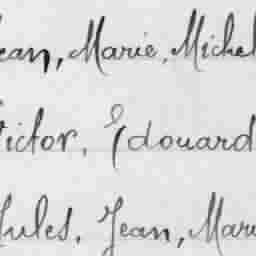 Jean, Marie, Michel
Victor, Edouard
Jules, Jean, Mari